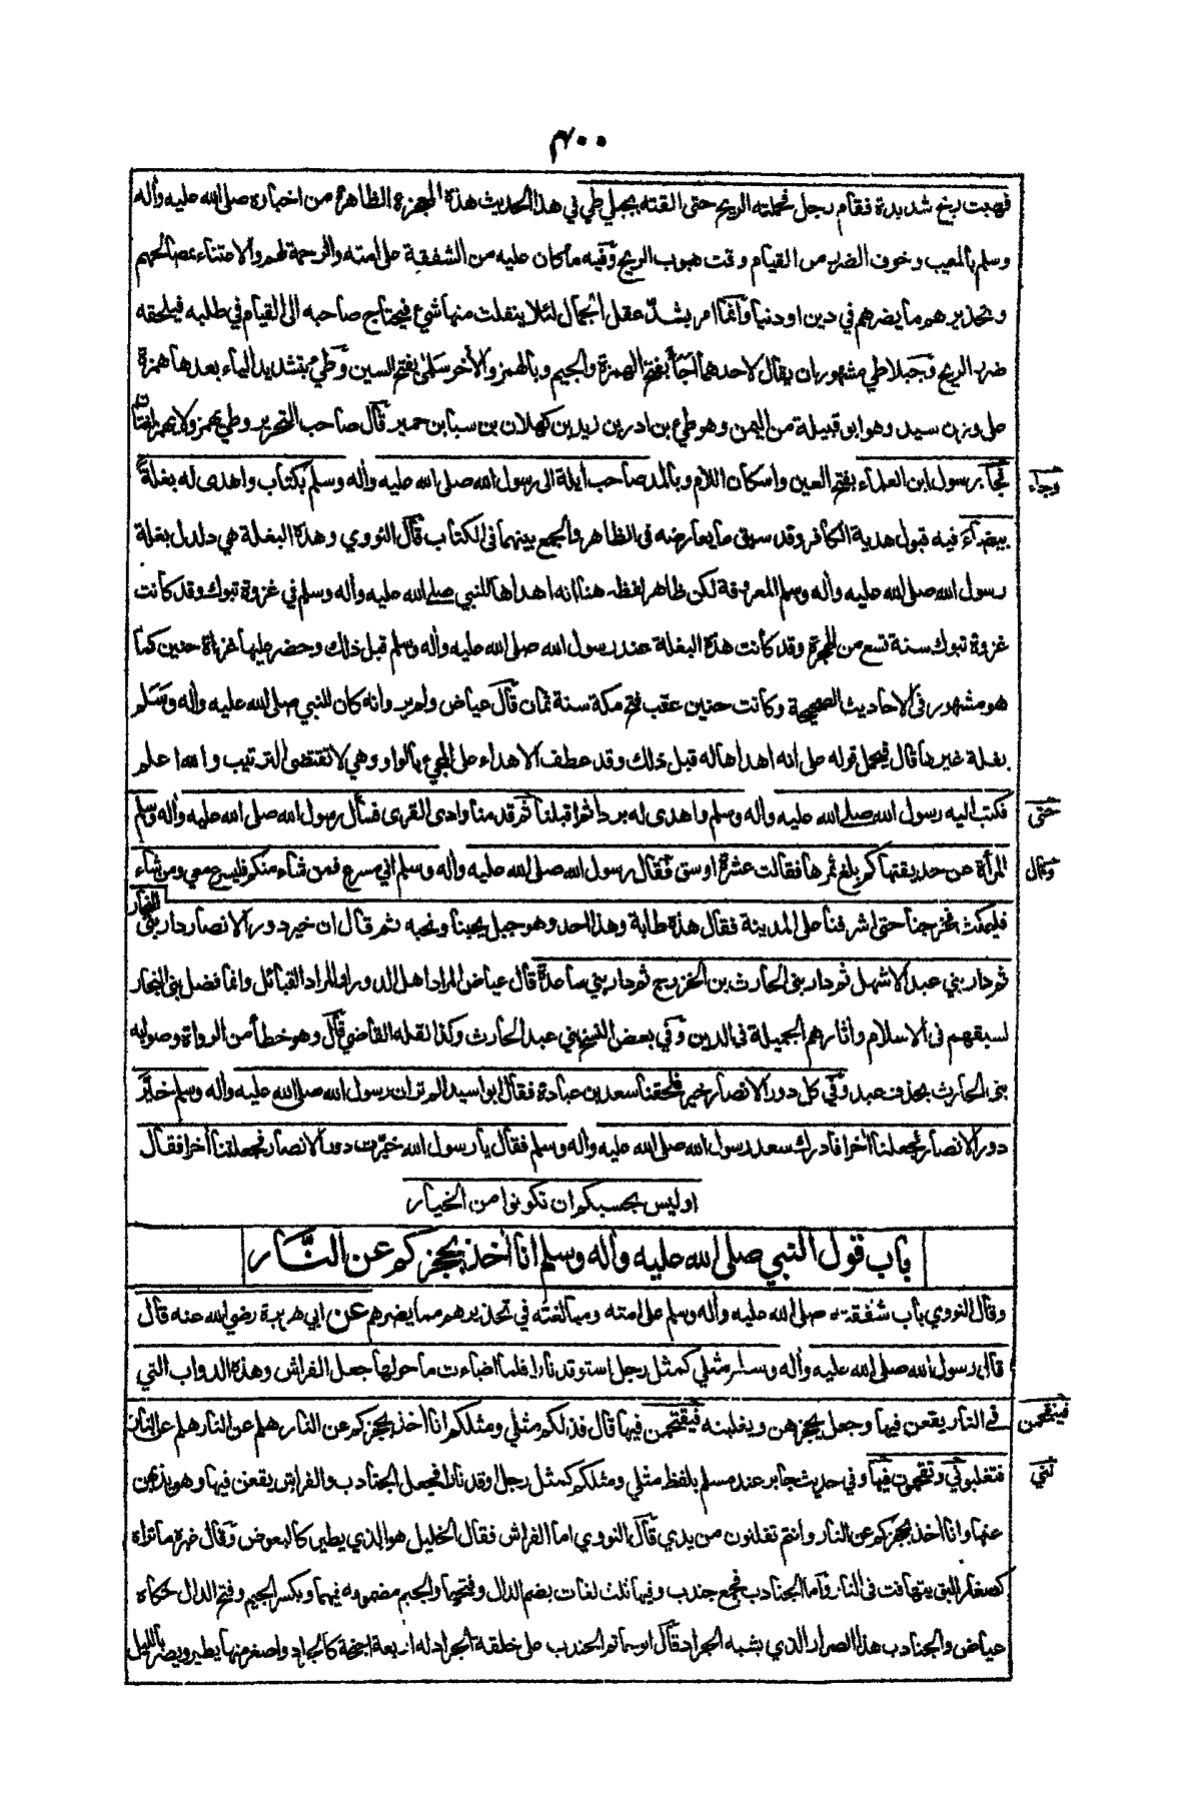 ٤٠٠
فهبت ريح شديدة فقام رجل فحملته الريح حتى القته بجبلي طي في هذا الحديث هذة المعجزة الظاهرة من اخباره صلى الله عليه وأله
وسلم بالمغيب وخوف الضرر من القيام وقت هبوب الريح وفيه ما كان عليه من الشفقة على امته والرحمة لهم والاعتناء بمصالحهم
وتحذيرهم ما يضرهم في دين او دنيا وانما امر بشد عقل الجمال لئلا ينفلت منها شيء فيحتاج صاحبه الى القيام في طلبه فيلحقه
ضرر الريح وجبلا طي مشهوران يقال لاحدهما أجأ بفتح الهمزة والجيم وبالهمز والأخر سلمى بفتح السين وطيء بتشديد الياء بعدها همزة
على وزن سيد وهو ابو قبيلة من اليمن وهو طيء بن ادد بن زيد بن كهلان بن سبا بن حمير قال صاحب التحرير وطي يهمز ولا يهمز لغتان
فجاء رسول ابن العلماء بفتح العين واسكان اللام وبالمد صاحب ايلة الى رسول الله صلى الله عليه وأله وسلم بكتاب واهدى له بغلة
وجاء
بيضاء فيه قبول هدية الكافر وقد سبق ما يعارضه في الظاهر والجمع بينهما في الكتاب قال النووي وهذة البغلة هي دلدل بغلة
رسول الله صلى الله عليه وأله وسلم المعروفة لكن ظاهر لفظه هنا انه اهداها للنبي صلى الله عليه وأله وسلم في غزوة تبوك وقد كانت
غزوة تبوك سنة تسع من الهجرة وقد كانت هذة البغلة عند رسول الله صلى الله عليه وأله وسلم قبل ذلك وحضر عليها غزاة حنين كما
هو مشهور في الاحاديث الصحيحة وكانت حنين عقب فتح مكة سنة ثمان قال عياض ولم يرو انه كان للنبي صلى الله عليه وأله وسلم
بغلة غيرها قال فيحمل قوله على انه اهداها له قبل ذلك وقد عطف الاهداء على المجيء بالواو وهي لا تقتضى الترتيب والله اعلم
فكتب اليه رسول الله صلى الله عليه وأله وسلم واهدى له بردا ثم اقبلنا ثم قدمنا وادى القرى فسأل رسول الله صلى الله عليه وأله وسلم
حتى
المرأة عن حديقتها كم بلغ ثمرها فقالت عشرة اوسق فقال رسول الله صلى الله عليه وأله وسلم اني مسرع فمن شاء منكم فليسرع معي ومن شاء
وقال
فليمكث فخرجنا حتى اشرفنا على المدينة فقال هذة طابة وهذا احد وهو جبل يحبنا ونحبه ثم قال ان خير دور الانصار دار بني النجار
ثم دار بني عبد الاشهل ثم دار بني الحارث بن الخزرج ثم دار بني ساعدة قال عياض المراد اهل الدور او المراد القبائل وانما فضل بني النجار
لسبقهم في الاسلام وأثارهم الجميلة في الدين وفي بعض النسخ بني عبد الحارث وكذا نقله القاضي قال وهو خطأ من الرواة وصوابه
بني الحارث بحذف عبد وفي كل دور الانصار خير فلحقنا سعد بن عبادة فقال ابو اسيد الم تر ان رسول الله صلى الله عليه وأله وسلم خير
دور الانصار فجعلنا أخرا فادرك سعد رسول الله صلى الله عليه وأله وسلم فقال يا رسول الله خيرت دور الانصار فجعلتنا أخرا فقال
اوليس بحسبكم ان تكونوا من الخيار
باب قول النبي صلى الله عليه وأله وسلم انا أخذ بحجزكم عن النار
وقال النووي باب شفقته صلى الله عليه وأله وسلم على امته ومبالغته في تحذيرهم مما يضرهم عن ابي هريرة رضي الله عنه قال
قال رسول الله صلى الله عليه وأله وسلم مثلي كمثل رجل استوقد نارا فلما اضاءت ما حولها جعل الفراش وهذة الدواب التي
في النار يقعن فيها وجعل يحجزهن ويغلبنه فيقتحمن فيها قال فذلكم مثلي ومثلكم انا أخذ بحجزكم عن النار هلم عن النار هلم عن النار
فيتقحمن
فتغلبوني وتقحمون فيها وفي حديث جابر عند مسلم بلفظ مثلي ومثلكم كمثل رجل اوقد نارا فجعل الجنادب والفراش يقعن فيها وهو يذبهن
عنها وانا أخذ بحجزكم عن النار وانتم تفلتون من يدي قال النووي اما الفراش فقال الخليل هو الذي يطير كالبعوض وقال غيره ما تراه
كصغار البق يتهافت في النار واما الجنادب فجمع جندب وفيها ثلث لغات بضم الدال وفتحها والجيم مضمومه فيهما وبكسر الجيم وفتح الدال حكاه
عياض والجنادب هذا الصرار الذي يشبه الجراد قال ابو حاتم الجندب على خلقة الجراد له اربعة اجنحة كالجراد واصغر منها يطير ويصر بالليل